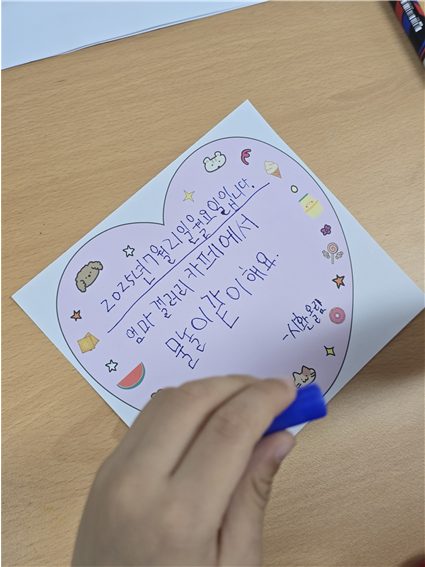 2025년 7월 21일은 월요일입니다.
엄마 갤러리 카페에서
물놀이 같이 해요.
-시환 올림